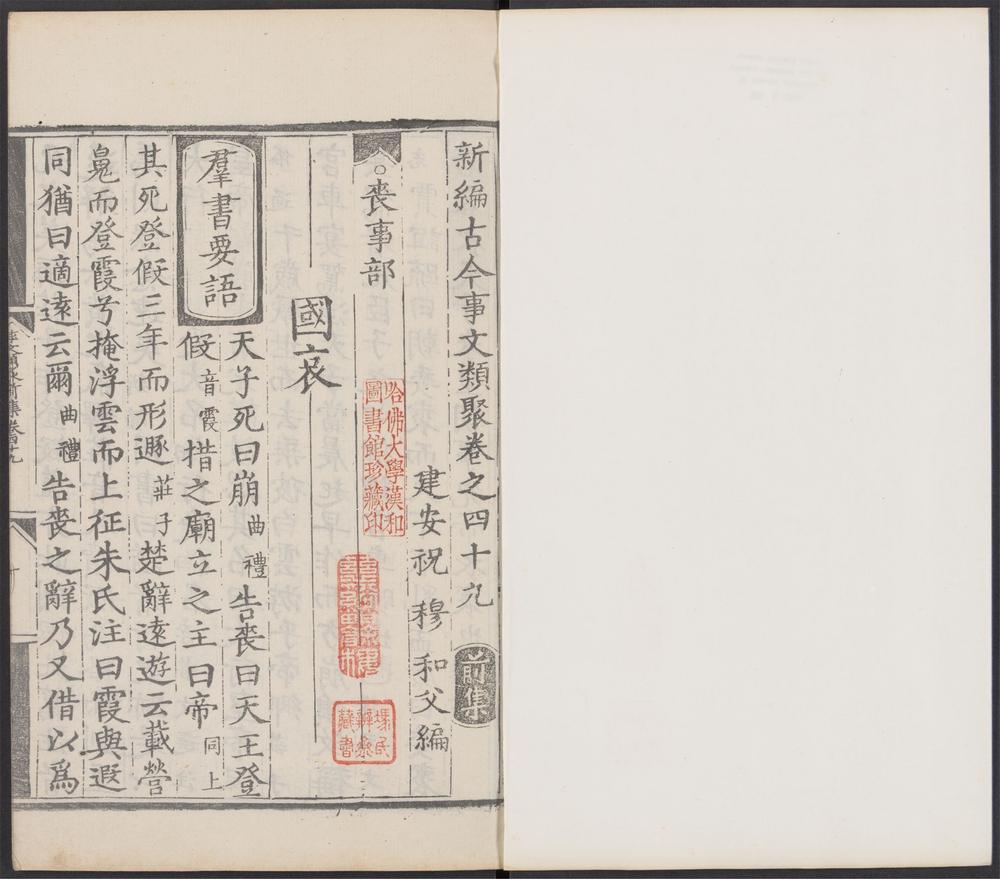 新編古今事文類聚卷之四十九
前集
建安祝　穆　和父編
○喪事部
國哀
羣書要語
天子死曰崩曲禮告喪曰天王登
假音霞措之廟立之主曰帝同上
其死登假三年而形遯莊子楚辭遠遊云載營
魄而登霞兮掩浮雲而上征朱氏注曰霞與遐
同猶曰適遠云爾曲禮告喪之辭乃又借以爲
哈佛大學漢和
圖書館珍藏印